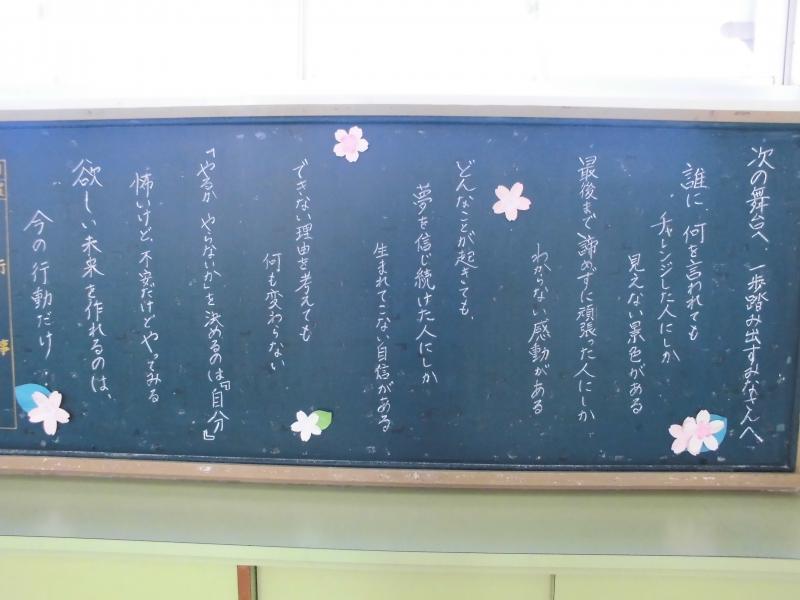 次の舞台へ、一歩踏み出すみなさんへ
誰に何を言われても
チャレンジした人にしか
見えない景色がある
最後まで諦めずに頑張った人にしか
わからない感動がある
どんなことが起きても、
夢を信じ続けた人にしか
生まれてこない自信がある
できない理由を考えても
何も変わらない
「やるか やらないか」を決めるのは『自分』
怖いけど、不安だけどやってみる
欲しい未来を作れるのは、
今の行動だけ
行
事